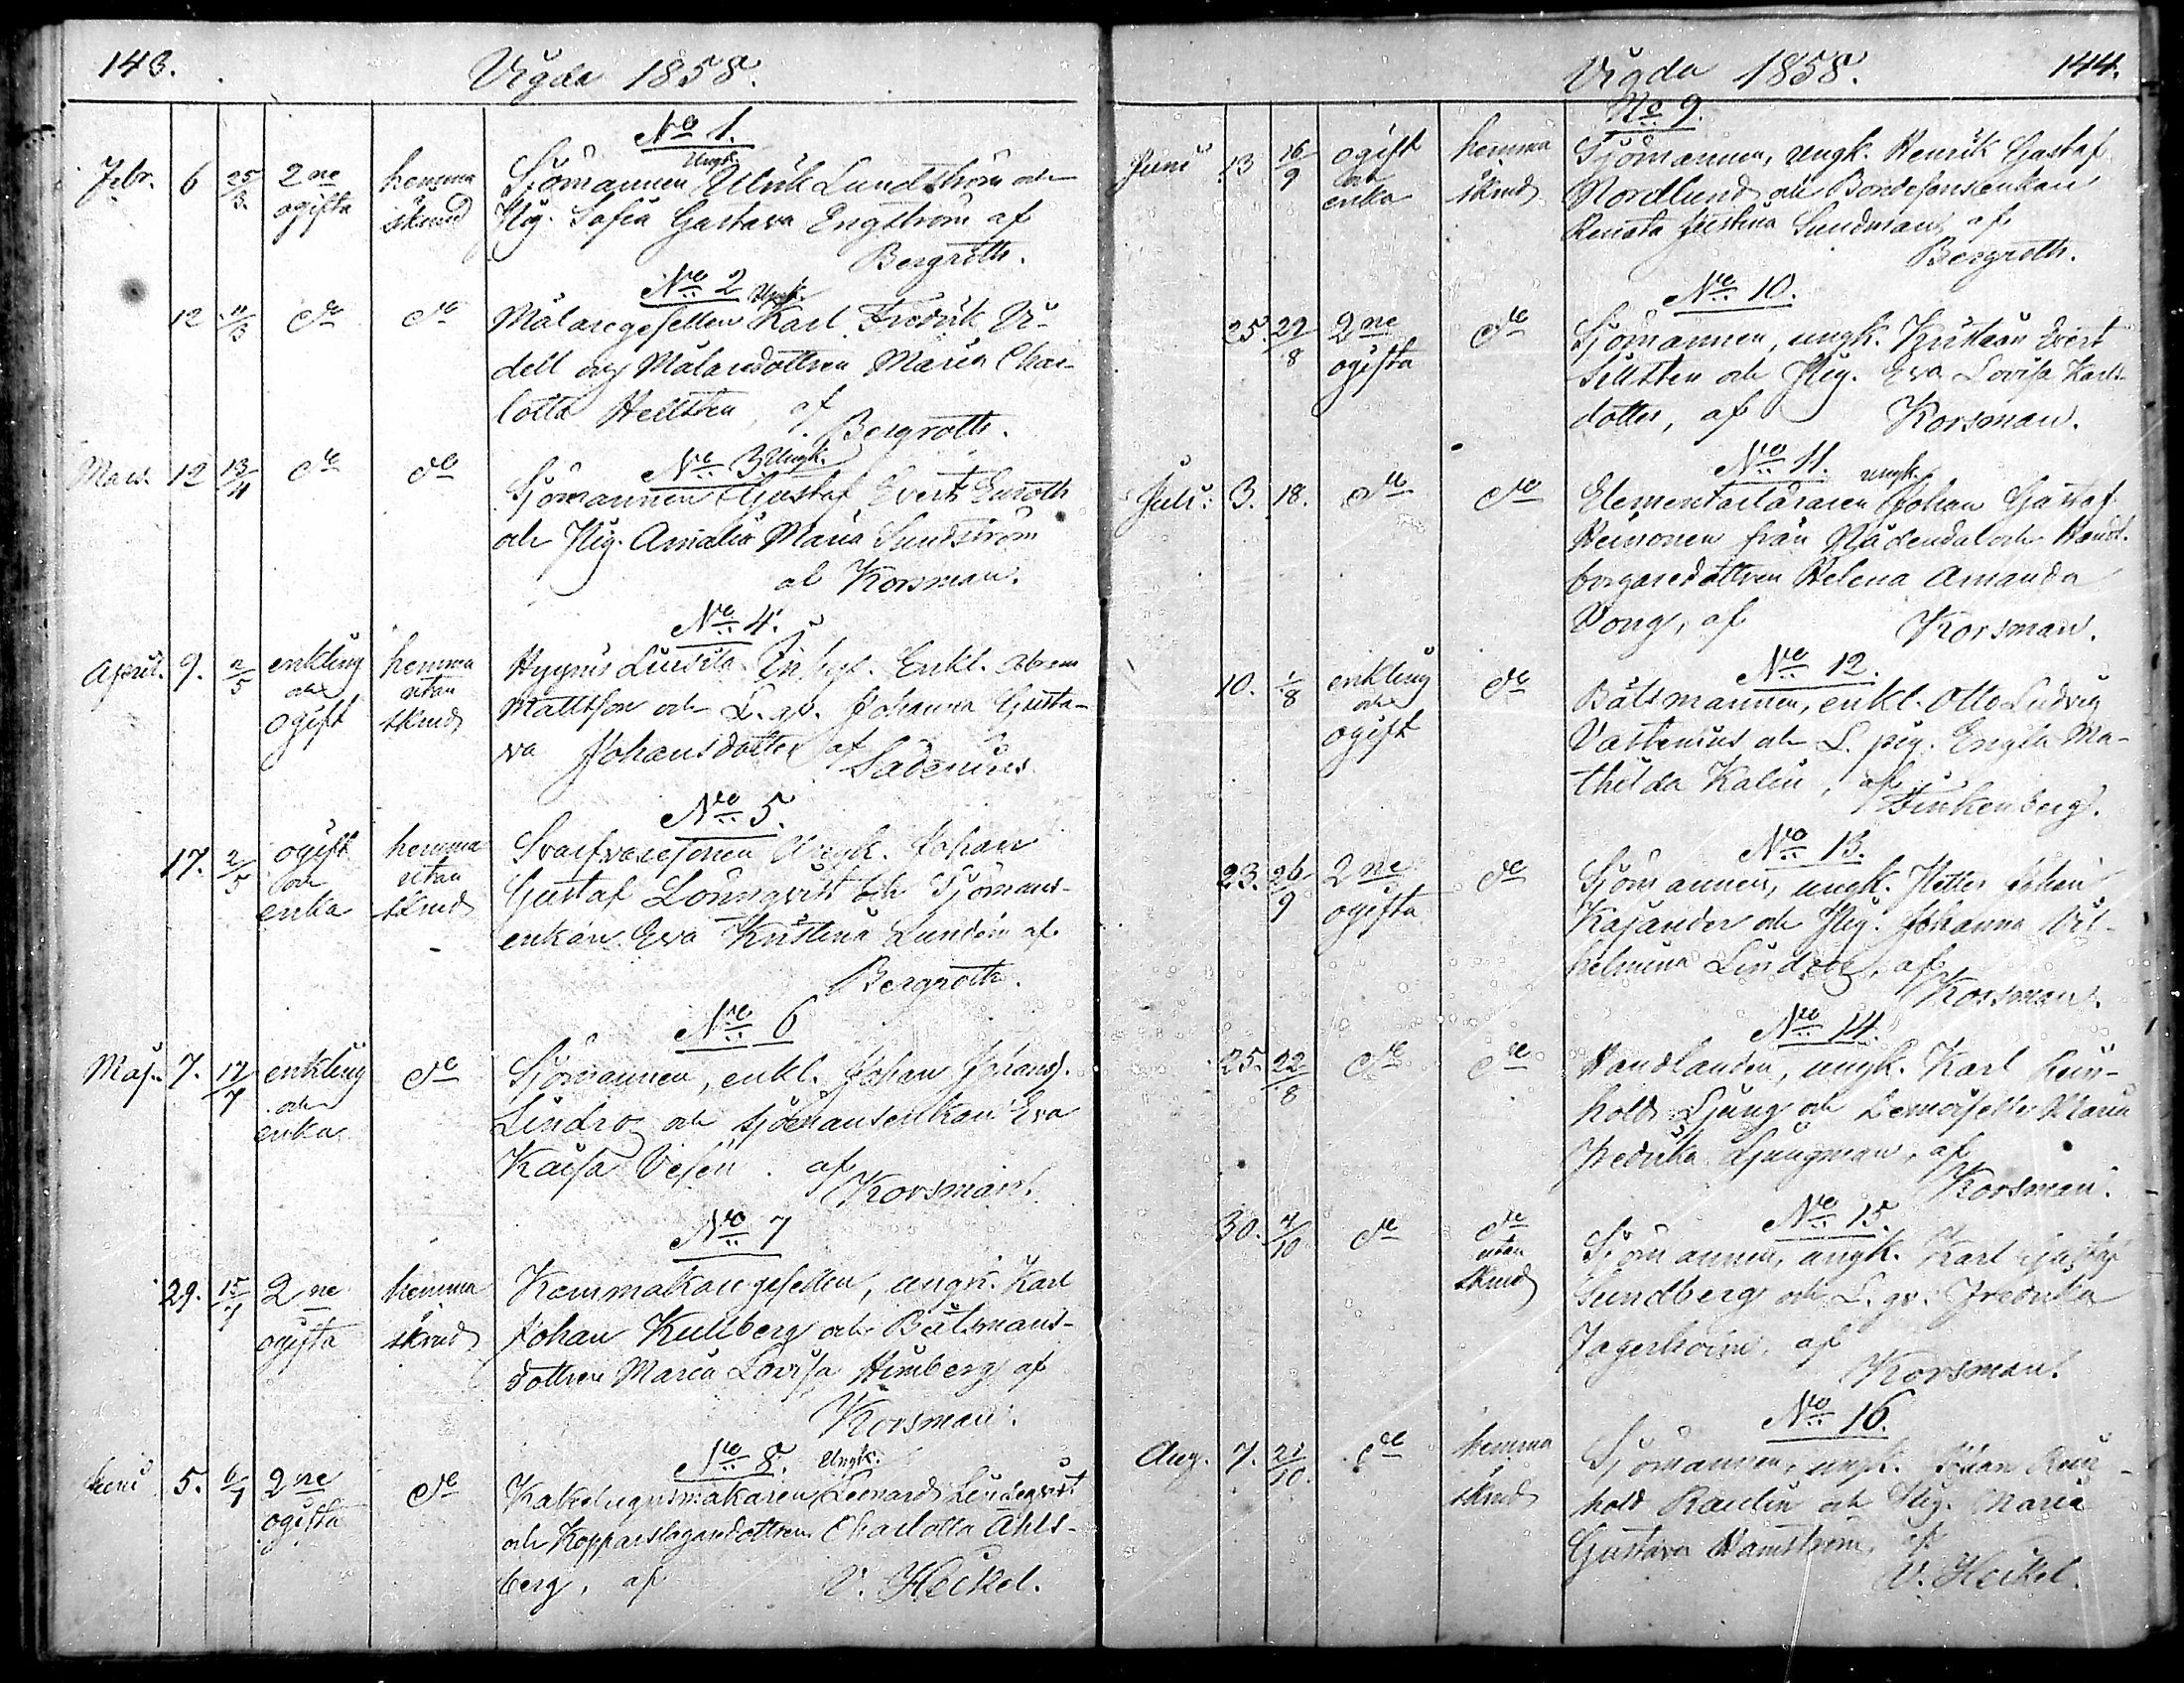 143.
Vigda 1858.
No 1.
Febr. 6 25/3. 2ne ogifta hemma i skrud
Ungk.
Sjömannen Ulrik Lundström och
Pig. Sofia Gustava Engström af
Bergroth.
No 2
12 11/3 do do
Ungk.
Målaregesellen Karl Fredrik Vi-
dell och Målaredottren Maria Char-
lotta Hellsten, af
Bergroth.
No 3. Ungk.
Mars 12 13/4 do do
Sjömannen Gustaf Evert Enroth
och Pig. Amalia Maria Sundström
af Korsman.
No 4.
April. 9. 2/5 enkling och ogift hemma utan skrud
Enkl. Abram
Mattsson och Johanna Gusta-
va Johansdotter af
Ladenius
No 5.
17. 2/5 ogift och enka hemma utan skrud
Ungk. Johan
Gustaf Lönnqvist och Sjömans-
enkan Eva Kristina Lundén af
Bergroth.
No 6
Maj. 7. 17/7 enkling och enka do
Sjömannen, enkl. Johan Johans.
Lindro och sjömansenkan Eva
Kaisa Vesén. af
Korsman.
No 7
29. 15/7 2ne ogifta hemma i skrud
Kammakaregesellen, ungk. Karl
Johan Kullberg och Båtsmans-
dottren Maria Lovisa Himberg af
Korsman.
No 8. Ungk.
Juni 5. 6/7 2ne ogifta do
Kakelugnsmakaren Leonard Lindeqvist
och Kopparslagaredottren Charlotta Ahls-
berg, af V. Heikel.
Vigda 1858.
144.
No 9.
Juni 13 16/9 ogift och enka hemma i skrud
Sjömannen, ungk. Henrik Gustaf
Nordlund och Bondesonsenkan
Renata Justina Sundman, af
Bergroth.
No 10.
25. 22/8 2ne ogifta do
Sjömannen, ungk. Kristian Evert
Sillsten och Pig. Eva Lovisa Karls-
dotter, af Korsman.
No 11.
ungk.
Juli. 3. 18. do do
Elementarläraren Johan Gustaf
Heinonen från Nådendal och Handl.
borgaredottren Helena Amanda
Vong, af Korsman.
No 12.
10. 1/8 enkling och ogift do
Båtsmannen, enkl. Otto Ludvig
Vastenius och L. pig. Engla Ma-
thilda Kalin, af
Finkenberg.
No 13.
23. 26/9 2ne ogifta do
Sjömannen, ungk. Petter Johan
Kajander och Pig. Johanna Vil-
helmina Lindroos, af
Korsman.
No 14.
25. 22/8 do do
Handlanden, ungk. Karl Rein-
hold Ljung och Demoiselle Maria
Fredrika Ljungman, af
Korsman.
No 15.
30. 4/10 do do utan skrud
Sjömannen, ungk. Karl Gustaf
Sundberg och Fredrika
Jagerholm, af
Korsman.
No 16.
Aug. 7. 21/10. do hemma i skrud
Sjömannen, ungk. Johan Rein-
hold Raulin och Pig. Maria
Gustava Hamström, af
V. Heikel.